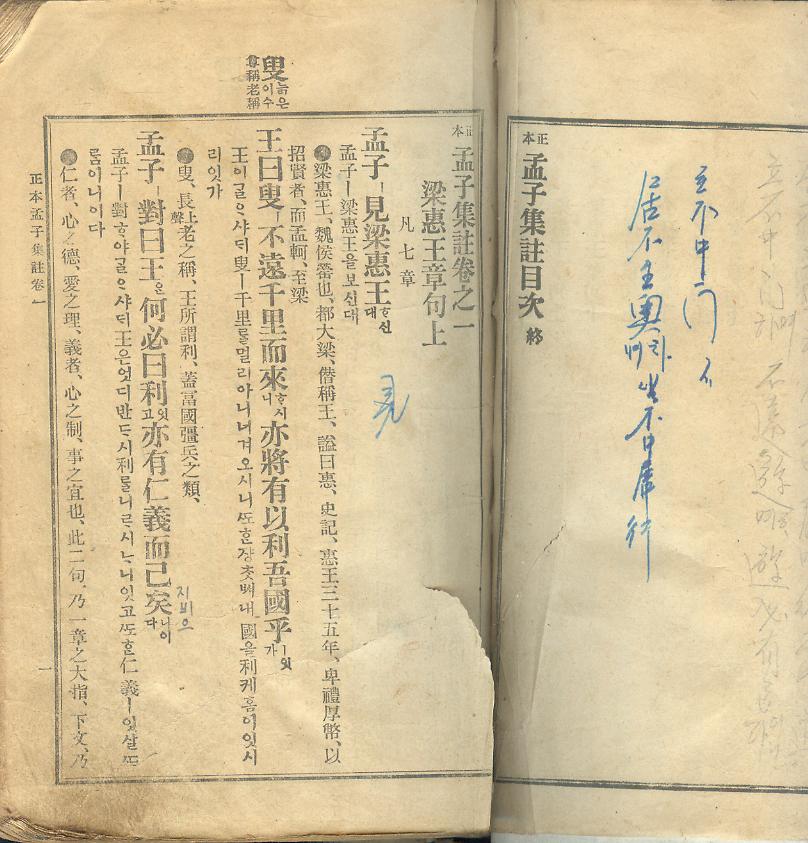 正本 孟子集註目次 終
立不中門
居不主奧하며 坐不中席 行
正本 孟子集註卷之一
梁惠王章句上
凡七章
孟子ㅣ見梁惠王ᄒᆞ신대
孟子ㅣ梁惠王을보신대
梁惠王、魏侯罃也、都大梁、僭稱王、諡曰惠、史記、惠王三十五年、卑禮厚幣、以
招賢者、而孟軻、至梁
王曰叟ㅣ不遠千里而來ᄒᆞ시니亦將有以利吾國乎ㅣ잇가
王이ᄀᆞᆯᄋᆞ샤ᄃᆡ叟ㅣ千里ᄅᆞᆯ멀리아니녀겨오시니ᄯᅩᄒᆞᆫ쟝ᄎᆞᆺᄡᅥ내國을利케홈이잇시
리잇가
叟、長上聲老之稱、王所謂利、蓋富國彊兵之類、
孟子ㅣ對曰王은何必曰利잇고亦有仁義而已矣니이다
孟子ㅣ對ᄒᆞ야ᄀᆞᆯᄋᆞ샤ᄃᆡ王은엇디반ᄃᆞ시利ᄅᆞᆯ니ᄅᆞ시ᄂᆞ니잇고ᄯᅩᄒᆞᆫ仁義ㅣ잇살ᄯᆞ
ᄅᆞᆷ이니이다
仁者、心之德、愛之理、義者、心之制、事之宜也、此二句、乃一章之大指、下文、乃
正本孟子集註卷一
一
叟 늙은이수
尊稱老稱